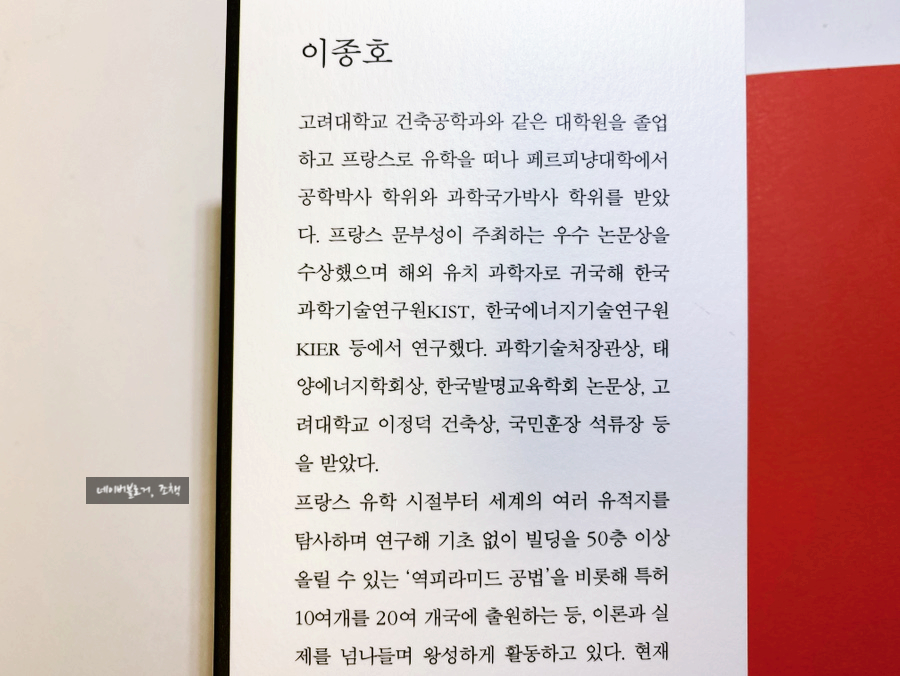 이종호
고려대학교 건축공학과와 같은 대학원을 졸업
하고 프랑스로 유학을 떠나 페르피냥대학에서
공학박사 학위와 과학국가박사 학위를 받았
다. 프랑스 문부성이 주최하는 우수 논문상을
수상했으며 해외 유치 과학자로 귀국해 한국
과학기술연구원KIST, 한국에너지기술연구원
KIER 등에서 연구했다. 과학기술처장관상, 태
양에너지학회상, 한국발명교육학회 논문상, 고
려대학교 이정덕 건축상, 국민훈장 석류장 등
을 받았다.
프랑스 유학 시절부터 세계의 여러 유적지를
탐사하며 연구해 기초 없이 빌딩을 50층 이상
올릴 수 있는 ‘역피라미드 공법’을 비롯해 특허
10여개를 20여 개국에 출원하는 등, 이론과 실
제를 넘나들며 왕성하게 활동하고 있다. 현재
네이버블로거, 조책